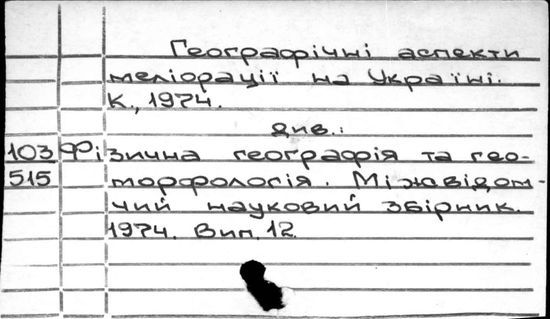 Географічні аспекти
меліорації на Україні.
К., 1974.
див.:
103 Фізична географія та гео-
515 морфологія. Міжвідом-
чий науковий збірник.
1974. Вип. 12